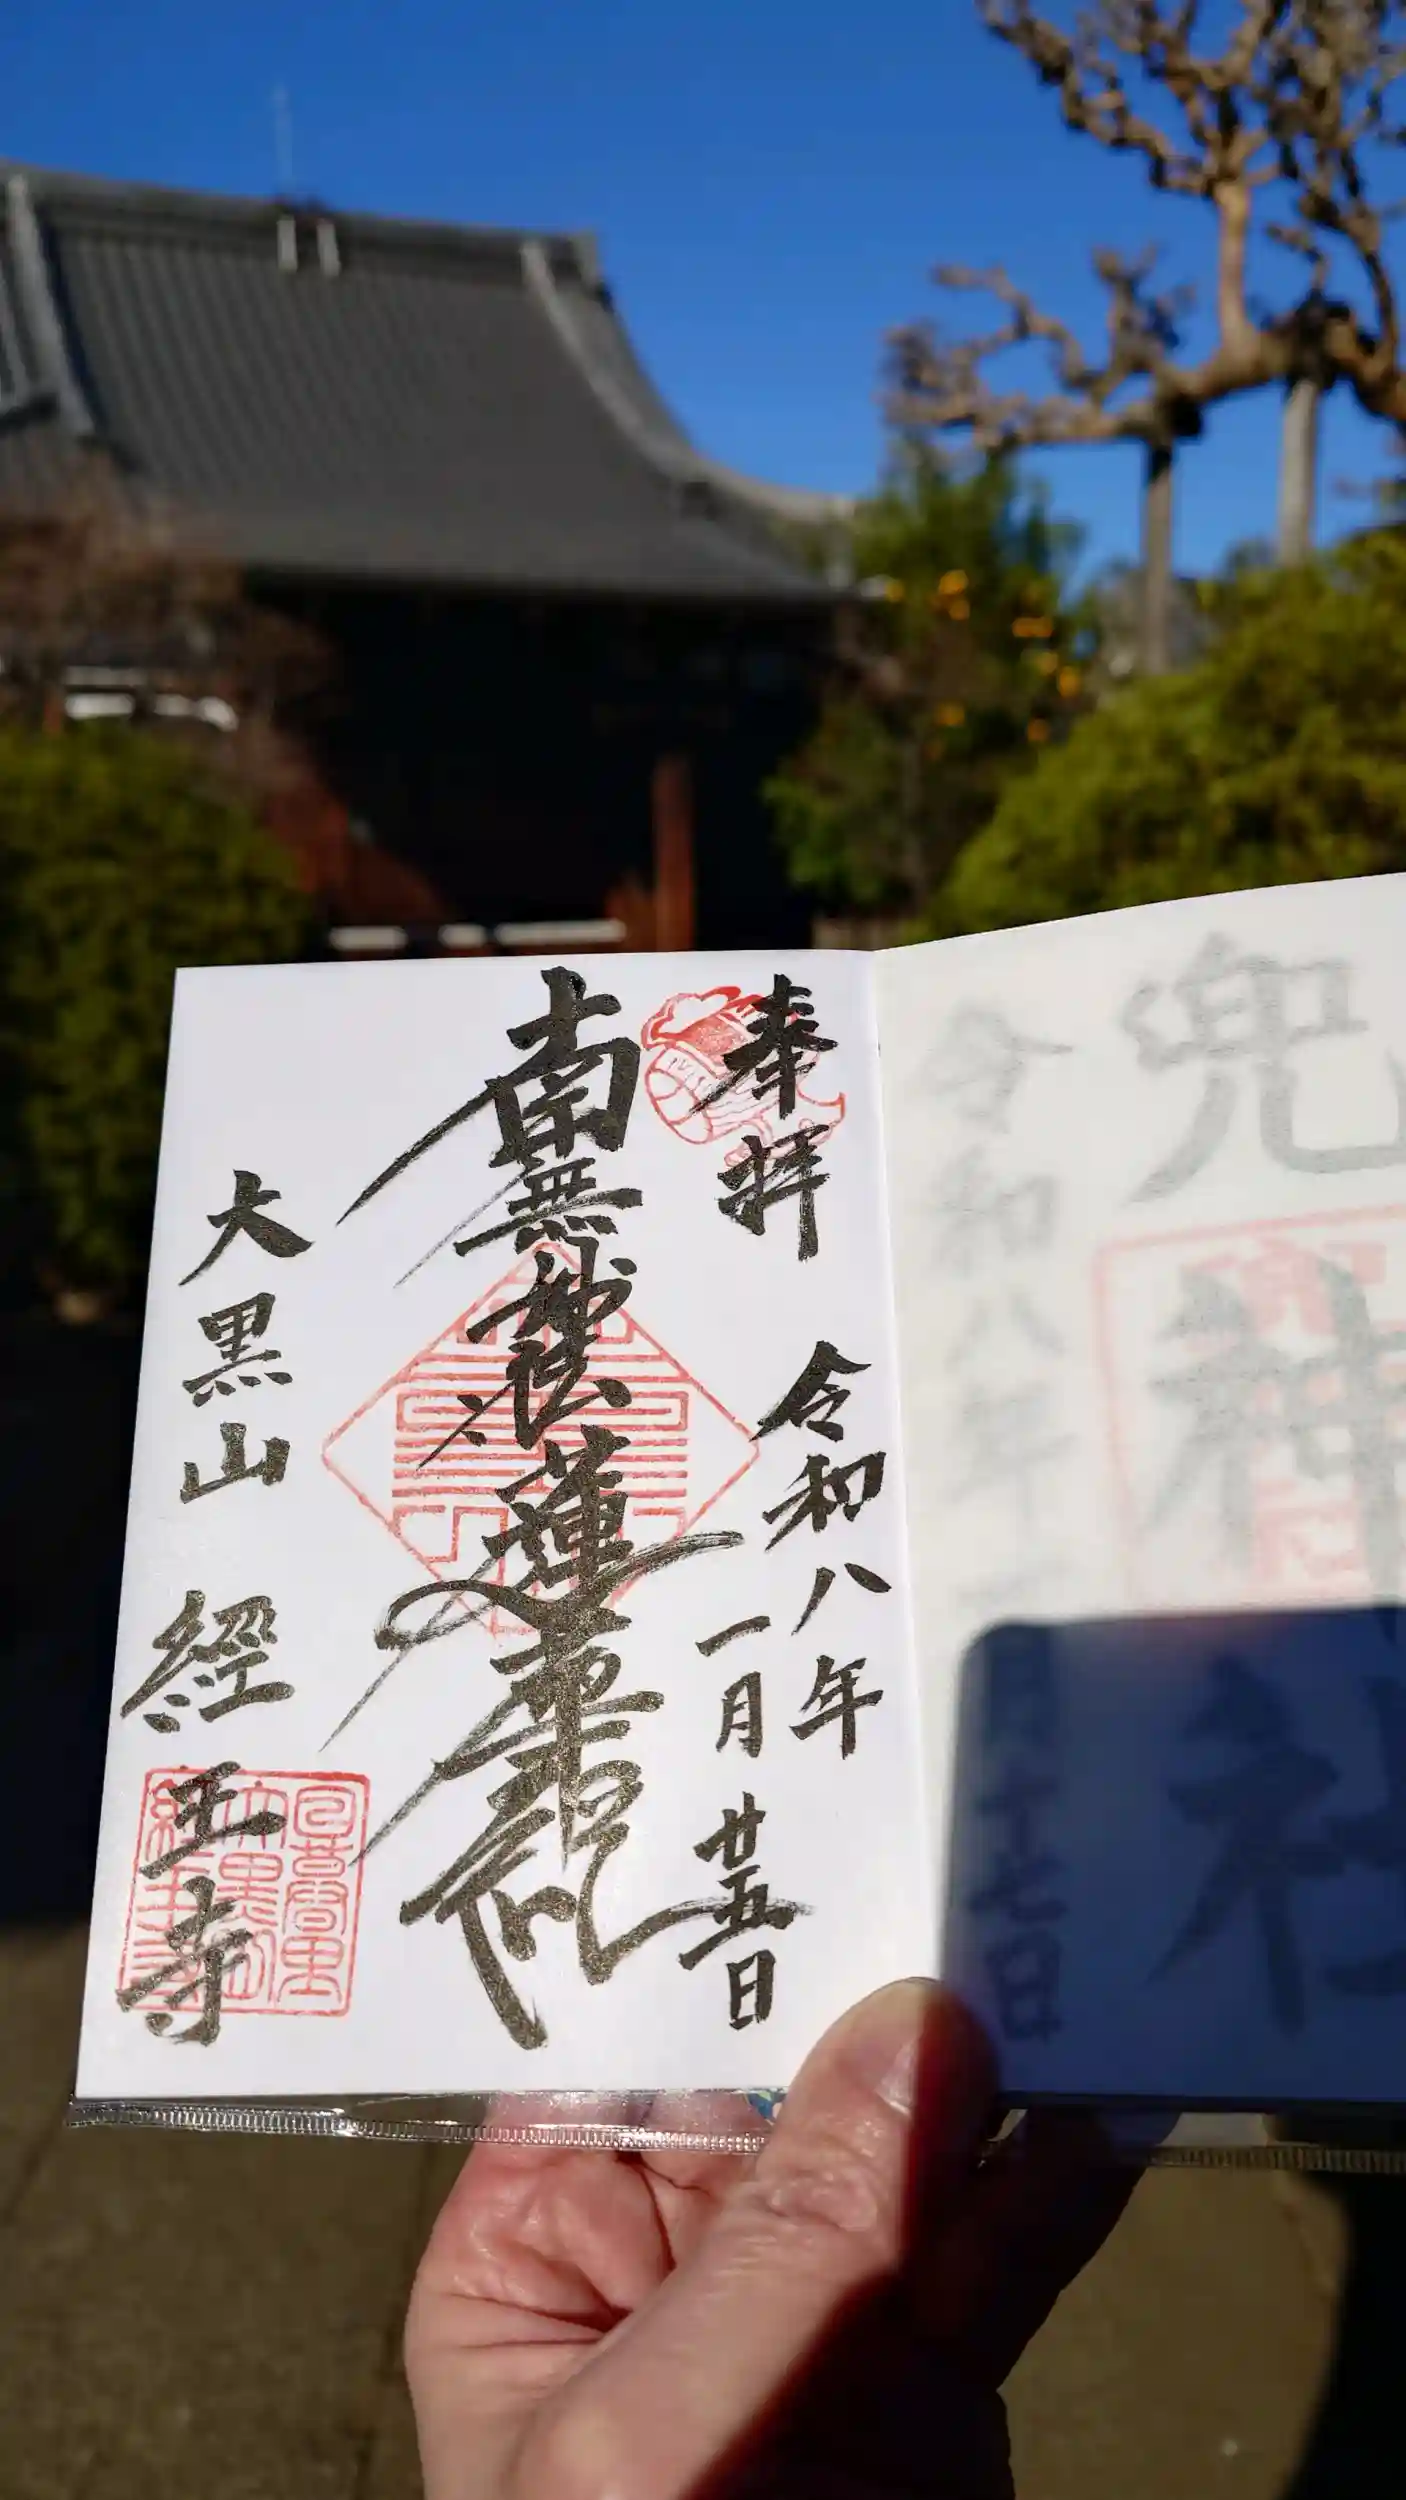 兜神社
令和八年
奉拝
令和八年
一月廿五日
南無妙法蓮華経
大黒山 經王寺